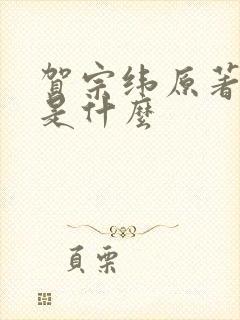 賀宗緯原著
是什麼
頁栗